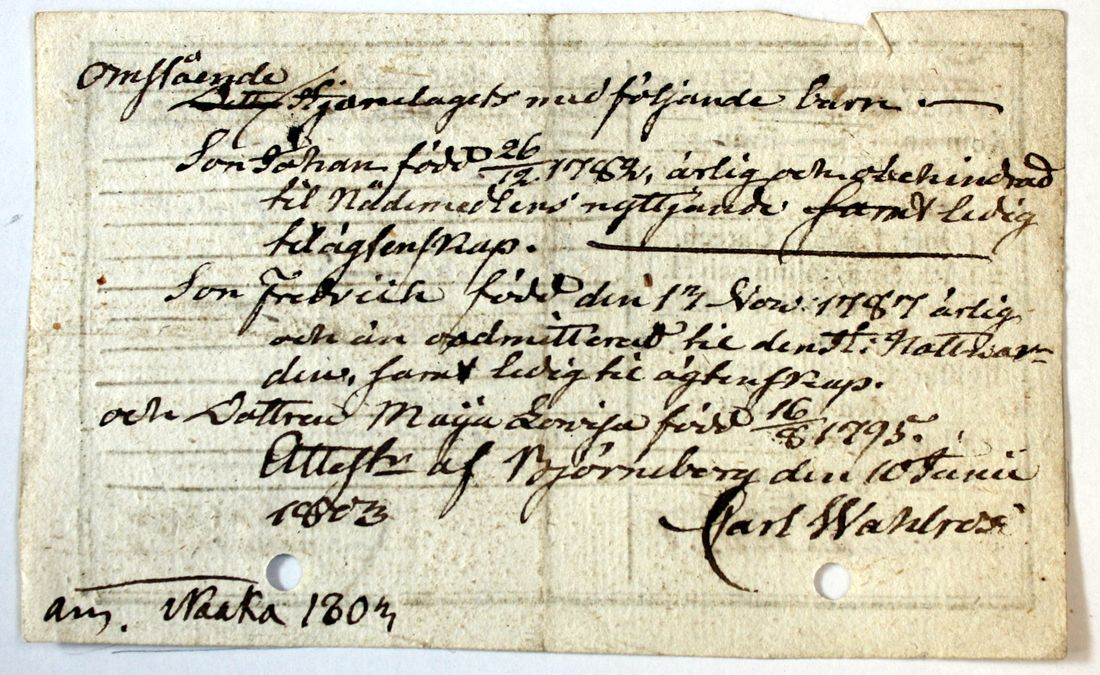 Omstående
Detta Hjonelagets med följande barn. —
Son Johan född 26/12 1782, ärlig och obehindrad
til Nådemedlens nyttjande samt ledig
til ägtenskap.
Son Fredrich född den 13 Nov. 1787 ärlig
och än oadmitterad til den H: Nattvar-
den, samt ledig til ägtenskap.
och Dottren Maija Lovisa född 16/8 1795.
Attestr af Björneborg den 10 Junii
1803 Carl Wahlros
Naaka 1803